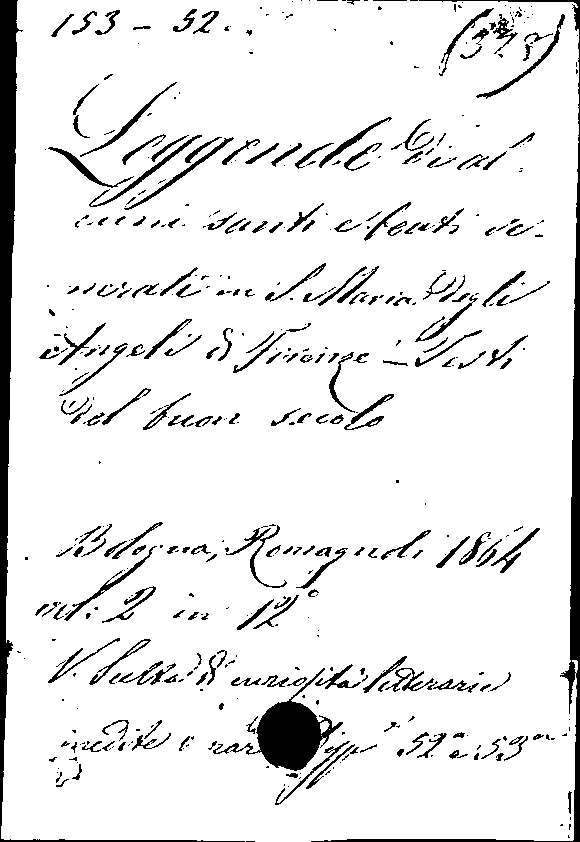 153 - 52.
(373)
Leggende di al-
cuni santi e beati ve-
nerati in S. Maria degli
Angeli di Firenze - Testi
del buon secolo
Bologna, Romagnoli 1864
vol: 2 in 12°
V. Scelta di curiosità letterarie
inedite o rare Disp.e 52a e 53a